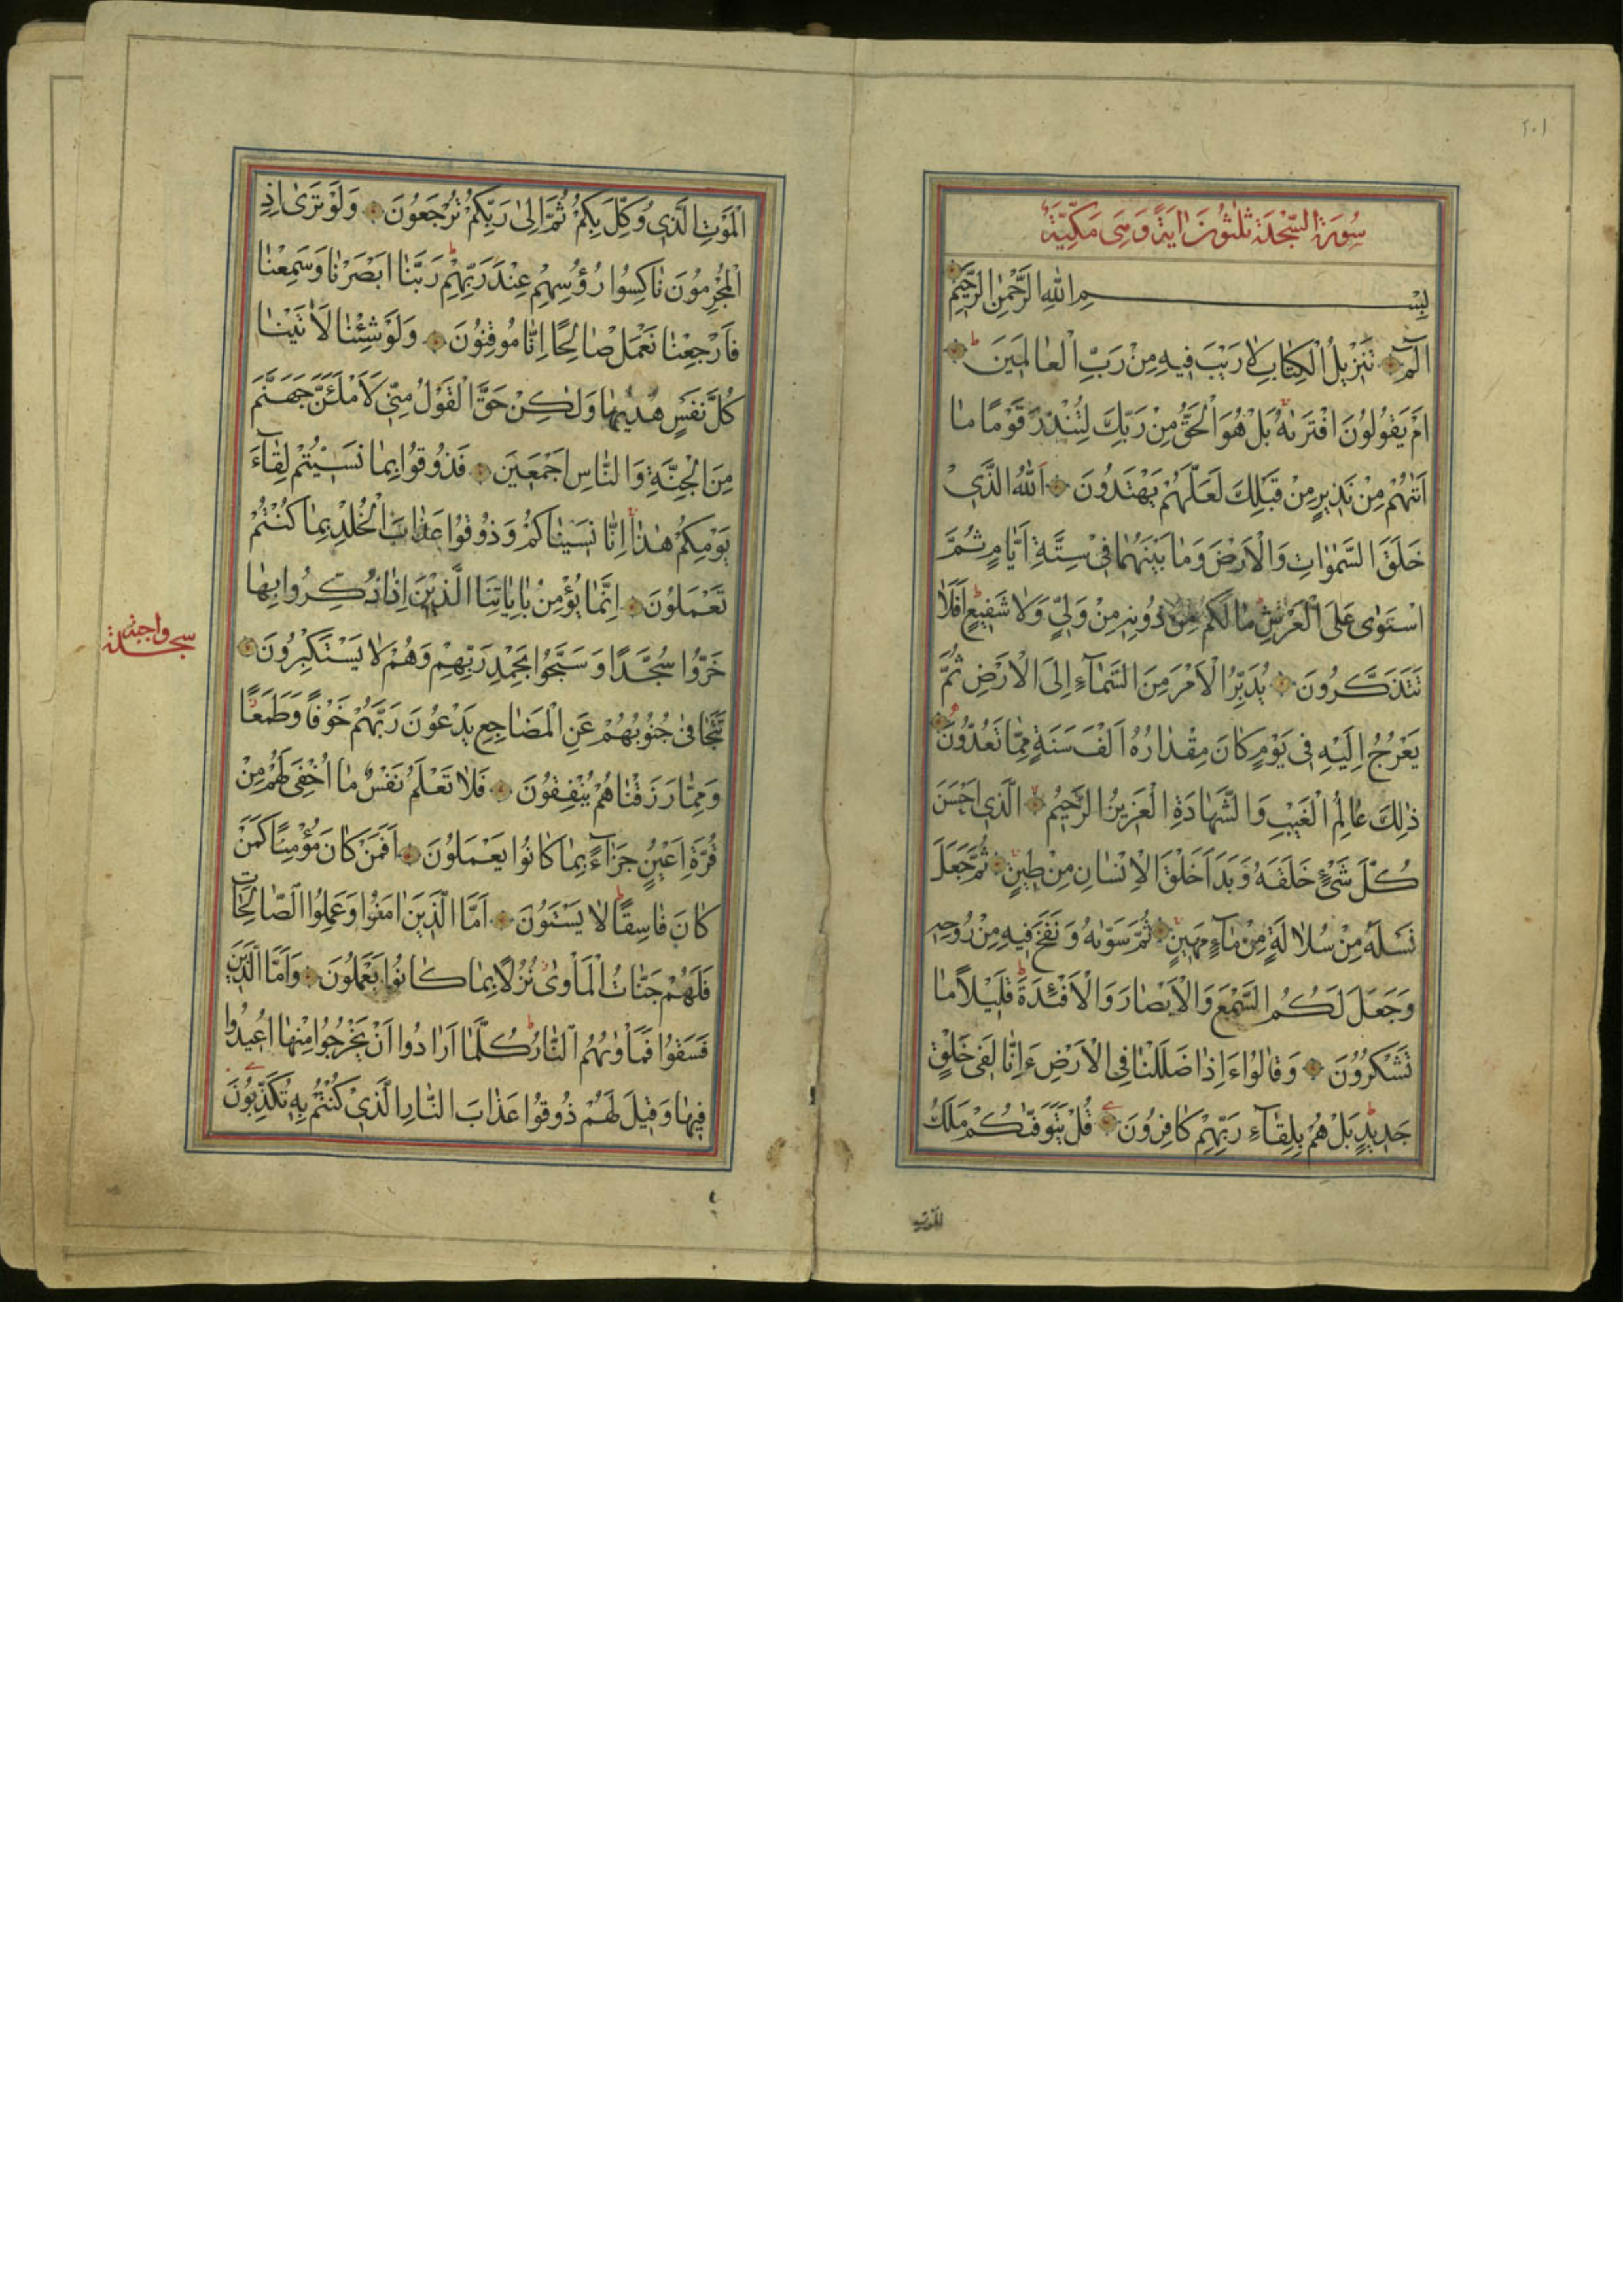 ٢٠١
سُورَةُ السَّجْدَةِ ثَلٰثُونَ اٰيَةً وَهِىَ مَكِّيَّةٌ
بِسْمِ اللهِ الرَّحْمٰنِ الرَّحِيمِ
الٓمٓ تَنْزِيلُ الْكِتٰابِ لٰا رَيْبَ فِيهِ مِنْ رَبِّ الْعٰالَمِينَ
اَمْ يَقُولُونَ افْتَرٰيهُ بَلْ هُوَ الْحَقُّ مِنْ رَبِّكَ لِتُنْذِرَ قَوْمًا مٰا
اَتٰيهُمْ مِنْ نَذِيرٍ مِنْ قَبْلِكَ لَعَلَّهُمْ يَهْتَدُونَ اَللهُ الَّذِي
خَلَقَ السَّمٰوٰاتِ وَالْاَرْضَ وَمٰا بَيْنَهُمٰا فِي سِتَّةِ اَيّٰامٍ ثُمَّ
اسْتَوٰى عَلَى الْعَرْشِ مٰا لَكُمْ مِنْ دُونِهِ مِنْ وَلِيٍّ وَلٰا شَفِيعٍ اَفَلٰا
تَتَذَكَّرُونَ يُدَبِّرُ الْاَمْرَ مِنَ السَّمٰاءِ اِلَى الْاَرْضِ ثُمَّ
يَعْرُجُ اِلَيْهِ فِي يَوْمٍ كٰانَ مِقْدٰارُهُ اَلْفَ سَنَةٍ مِمّٰا تَعُدُّونَ
ذٰلِكَ عٰالِمُ الْغَيْبِ وَالشَّهٰادَةِ الْعَزِيزُ الرَّحِيمُ الَّذِي اَحْسَنَ
كُلَّ شَيْءٍ خَلَقَهُ وَبَدَاَ خَلْقَ الْاِنْسٰانِ مِنْ طِينٍ ثُمَّ جَعَلَ
نَسْلَهُ مِنْ سُلٰالَةٍ مِنْ مٰاءٍ مَهِينٍ ثُمَّ سَوّٰيهُ وَنَفَخَ فِيهِ مِنْ رُوحِهِ
وَجَعَلَ لَكُمُ السَّمْعَ وَالْاَبْصٰارَ وَالْاَفْئِدَةَ قَلِيلًا مٰا
تَشْكُرُونَ وَقٰالُوا ءَاِذٰا ضَلَلْنٰا فِي الْاَرْضِ ءَاِنّٰا لَفِي خَلْقٍ
جَدِيدٍ بَلْ هُمْ بِلِقٰاءِ رَبِّهِمْ كٰافِرُونَ قُلْ يَتَوَفّٰيكُمْ مَلَكُ
الموت
الْمَوْتِ الَّذِي وُكِّلَ بِكُمْ ثُمَّ اِلىٰ رَبِّكُمْ تُرْجَعُونَ وَلَوْ تَرىٰ اِذِ
الْمُجْرِمُونَ نٰاكِسُوا رُؤُسِهِمْ عِنْدَ رَبِّهِمْ رَبَّنٰا اَبْصَرْنٰا وَسَمِعْنٰا
فَارْجِعْنٰا نَعْمَلْ صٰالِحًا اِنّٰا مُوقِنُونَ وَلَوْ شِئْنٰا لَاٰتَيْنٰا
كُلَّ نَفْسٍ هُدٰيهٰا وَلٰكِنْ حَقَّ الْقَوْلُ مِنِّي لَاَمْلَئَنَّ جَهَنَّمَ
مِنَ الْجِنَّةِ وَالنّٰاسِ اَجْمَعِينَ فَذُوقُوا بِمٰا نَسِيتُمْ لِقٰاءَ
يَوْمِكُمْ هٰذٰا اِنّٰا نَسِينٰاكُمْ وَذُوقُوا عَذٰابَ الْخُلْدِ بِمٰا كُنْتُمْ
تَعْمَلُونَ اِنَّمٰا يُؤْمِنُ بِاٰيٰاتِنَا الَّذِينَ اِذٰا ذُكِّرُوا بِهٰا
خَرُّوا سُجَّدًا وَسَبَّحُوا بِحَمْدِ رَبِّهِمْ وَهُمْ لٰا يَسْتَكْبِرُونَ
سجدة واجبة
تَتَجٰافىٰ جُنُوبُهُمْ عَنِ الْمَضٰاجِعِ يَدْعُونَ رَبَّهُمْ خَوْفًا وَطَمَعًا
وَمِمّٰا رَزَقْنٰاهُمْ يُنْفِقُونَ فَلٰا تَعْلَمُ نَفْسٌ مٰا اُخْفِيَ لَهُمْ مِنْ
قُرَّةِ اَعْيُنٍ جَزٰاءً بِمٰا كٰانُوا يَعْمَلُونَ اَفَمَنْ كٰانَ مُؤْمِنًا كَمَنْ
كٰانَ فٰاسِقًا لٰا يَسْتَوُونَ اَمَّا الَّذِينَ اٰمَنُوا وَعَمِلُوا الصّٰالِحٰاتِ
فَلَهُمْ جَنّٰاتُ الْمَأْوىٰ نُزُلًا بِمٰا كٰانُوا يَعْمَلُونَ وَاَمَّا الَّذِينَ
فَسَقُوا فَمَأْوٰيهُمُ النّٰارُ كُلَّمٰا اَرٰادُوا اَنْ يَخْرُجُوا مِنْهٰا اُعِيدُوا
فِيهٰا وَقِيلَ لَهُمْ ذُوقُوا عَذٰابَ النّٰارِ الَّذِي كُنْتُمْ بِهِ تُكَذِّبُونَ